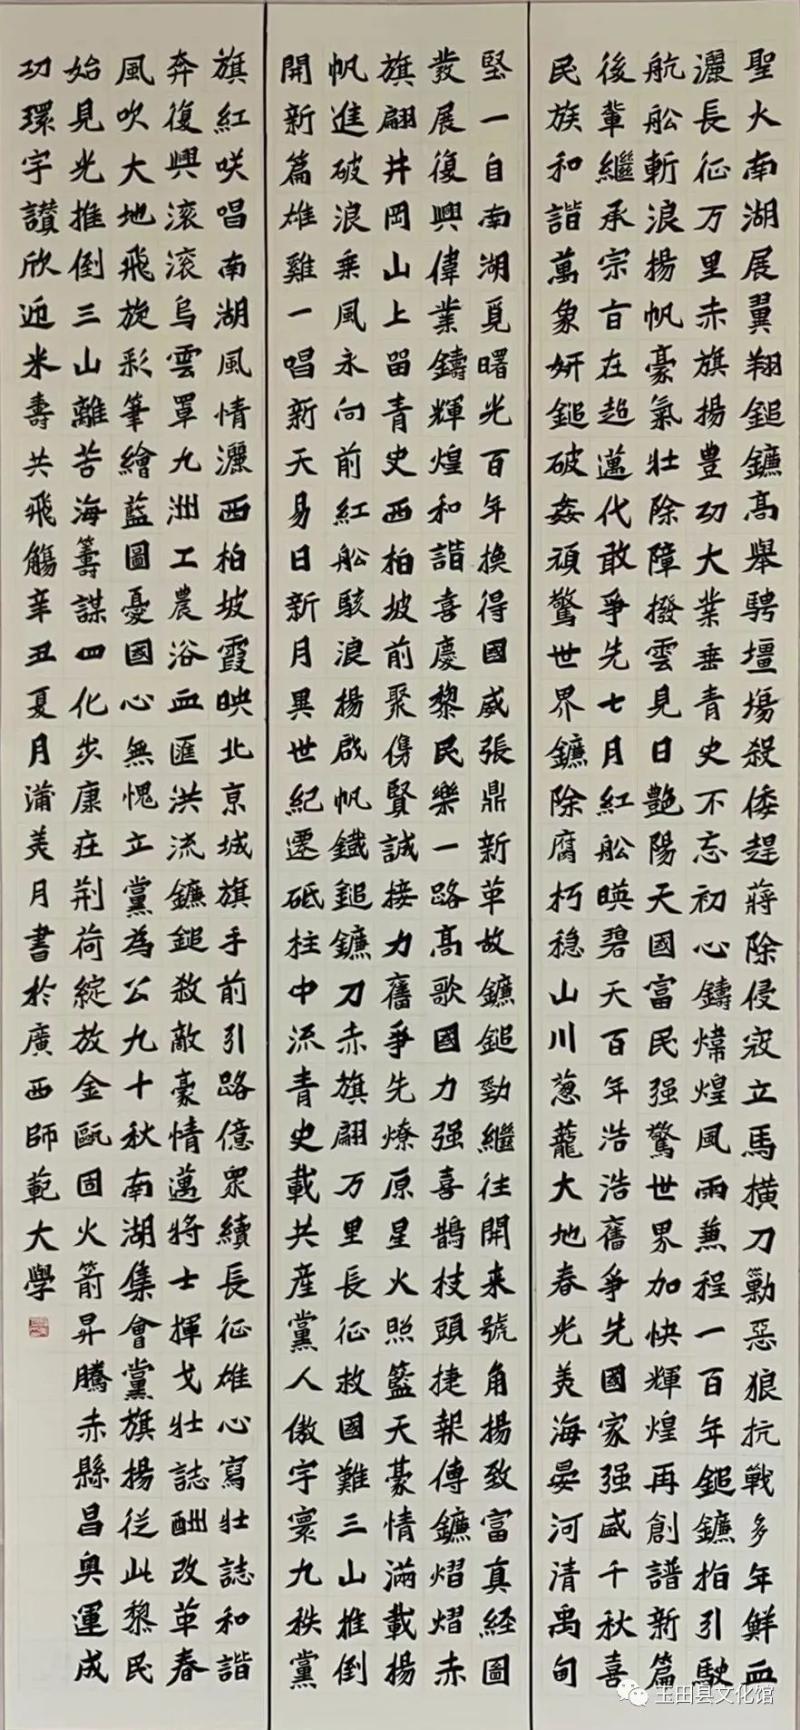 聖火南湖展翼翔鎚鐮高舉騁壇場殺倭趕蔣除侵寇立馬橫刀勦惡狼抗戰多年鮮血
灑長征万里赤旗揚豊功大業垂青史不忘初心鑄煒煌風雨兼程一百年鎚鐮指引駛
航船斬浪揚帆豪氣壯除障撥雲見日艷陽天國富民强驚世界加快輝煌再創譜新篇
後輩繼承宗旨在超邁代敢爭先七月紅船暎碧天百年浩浩舊爭先國家强盛千秋喜
民族和諧萬象妍鎚破姦頑驚世界鐮除腐朽稳山川蔥蘢大地春光美海晏河清禹甸
堅一自南湖覓曙光百年換得國威張鼎新革故鐮鎚勁繼往開来號角揚致富真経圖
發展復興偉業鑄輝煌和諧喜慶黎民樂一路高歌國力强喜鵲枝頭捷報傳鐮熠熠赤
旗翩井岡山上畱青史西柏坡前聚儁賢誠接力舊爭先燎原星火照籃天豪情滿載揚
帆進破浪乗風永向前紅船駭浪揚啟帆鐵鎚鐮刀赤旗翩万里長征救國難三山推倒
開新篇雄雞一唱新天易日新月異世紀遷砥柱中流青史載共産黨人傲宇寰九秩黨
旗紅咲唱南湖風情灑西柏坡霞映北京城旗手前引路億衆續長征雄心寫壮誌和諧
奔復興滚滚烏雲罩九洲工農浴血匯洪流鐮鎚殺敵豪情邁將士揮戈壮誌酬改革春
風吹大地飛旋彩筆繪藍圖憂國心無愧立黨為公九十秋南湖集會黨旗揚従此黎民
始見光推倒三山離苦海籌謀四化步康莊荆荷綻放金甌固火箭昇騰赤縣昌奥運成
功環宇讃欣迎米壽共飛觴辛丑夏月蒲美月書於廣西師範大學
玉田县文化馆